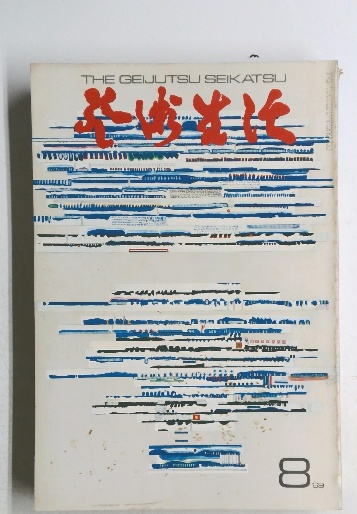 THE GEIJUTSU SEIKATSU
芸術生活
8
'69